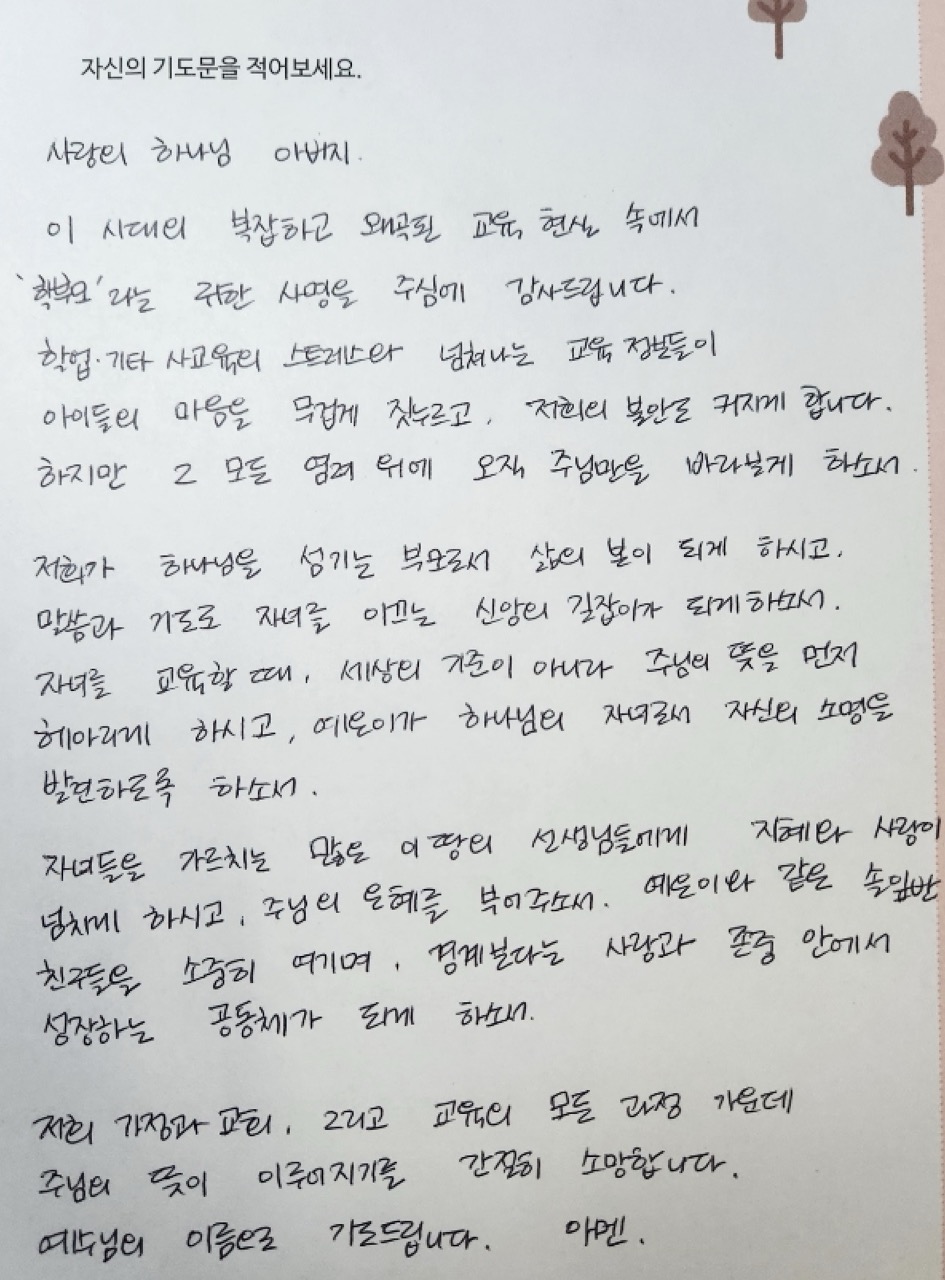 자신의 기도문을 적어보세요.
사랑의 하나님 아버지.
이 시대의 복잡하고 왜곡된 교육 현실 속에서
'학부모'라는 귀한 사명을 주심에 감사드립니다.
학업·기타 사교육의 스트레스와 넘쳐나는 교육 정보들이
아이들의 마음을 무겁게 짓누르고, 저희의 불안도 커지게 합니다.
하지만 그 모든 염려 위에 오직 주님만을 바라보게 하소서.
저희가 하나님을 섬기는 부모로서 삶의 본이 되게 하시고,
말씀과 기도로 자녀를 이끄는 신앙의 길잡이가 되게하소서.
자녀를 교육할 때, 세상의 기준이 아니라 주님의 뜻을 먼저
헤아리게 하시고, 예은이가 하나님의 자녀로서 자신의 소명을
발견하도록 하소서.
자녀들을 가르치는 많은 이 땅의 선생님들에게 지혜와 사랑이
넘치게 하시고, 주님의 은혜를 부어주소서. 예은이와 같은 솔잎반
친구들을 소중히 여기며, 경계보다는 사랑과 존중 안에서
성장하는 공동체가 되게 하소서.
저희 가정과 교회, 그리고 교육의 모든 과정 가운데
주님의 뜻이 이루어지기를 간절히 소망합니다.
예수님의 이름으로 기도드립니다. 아멘.